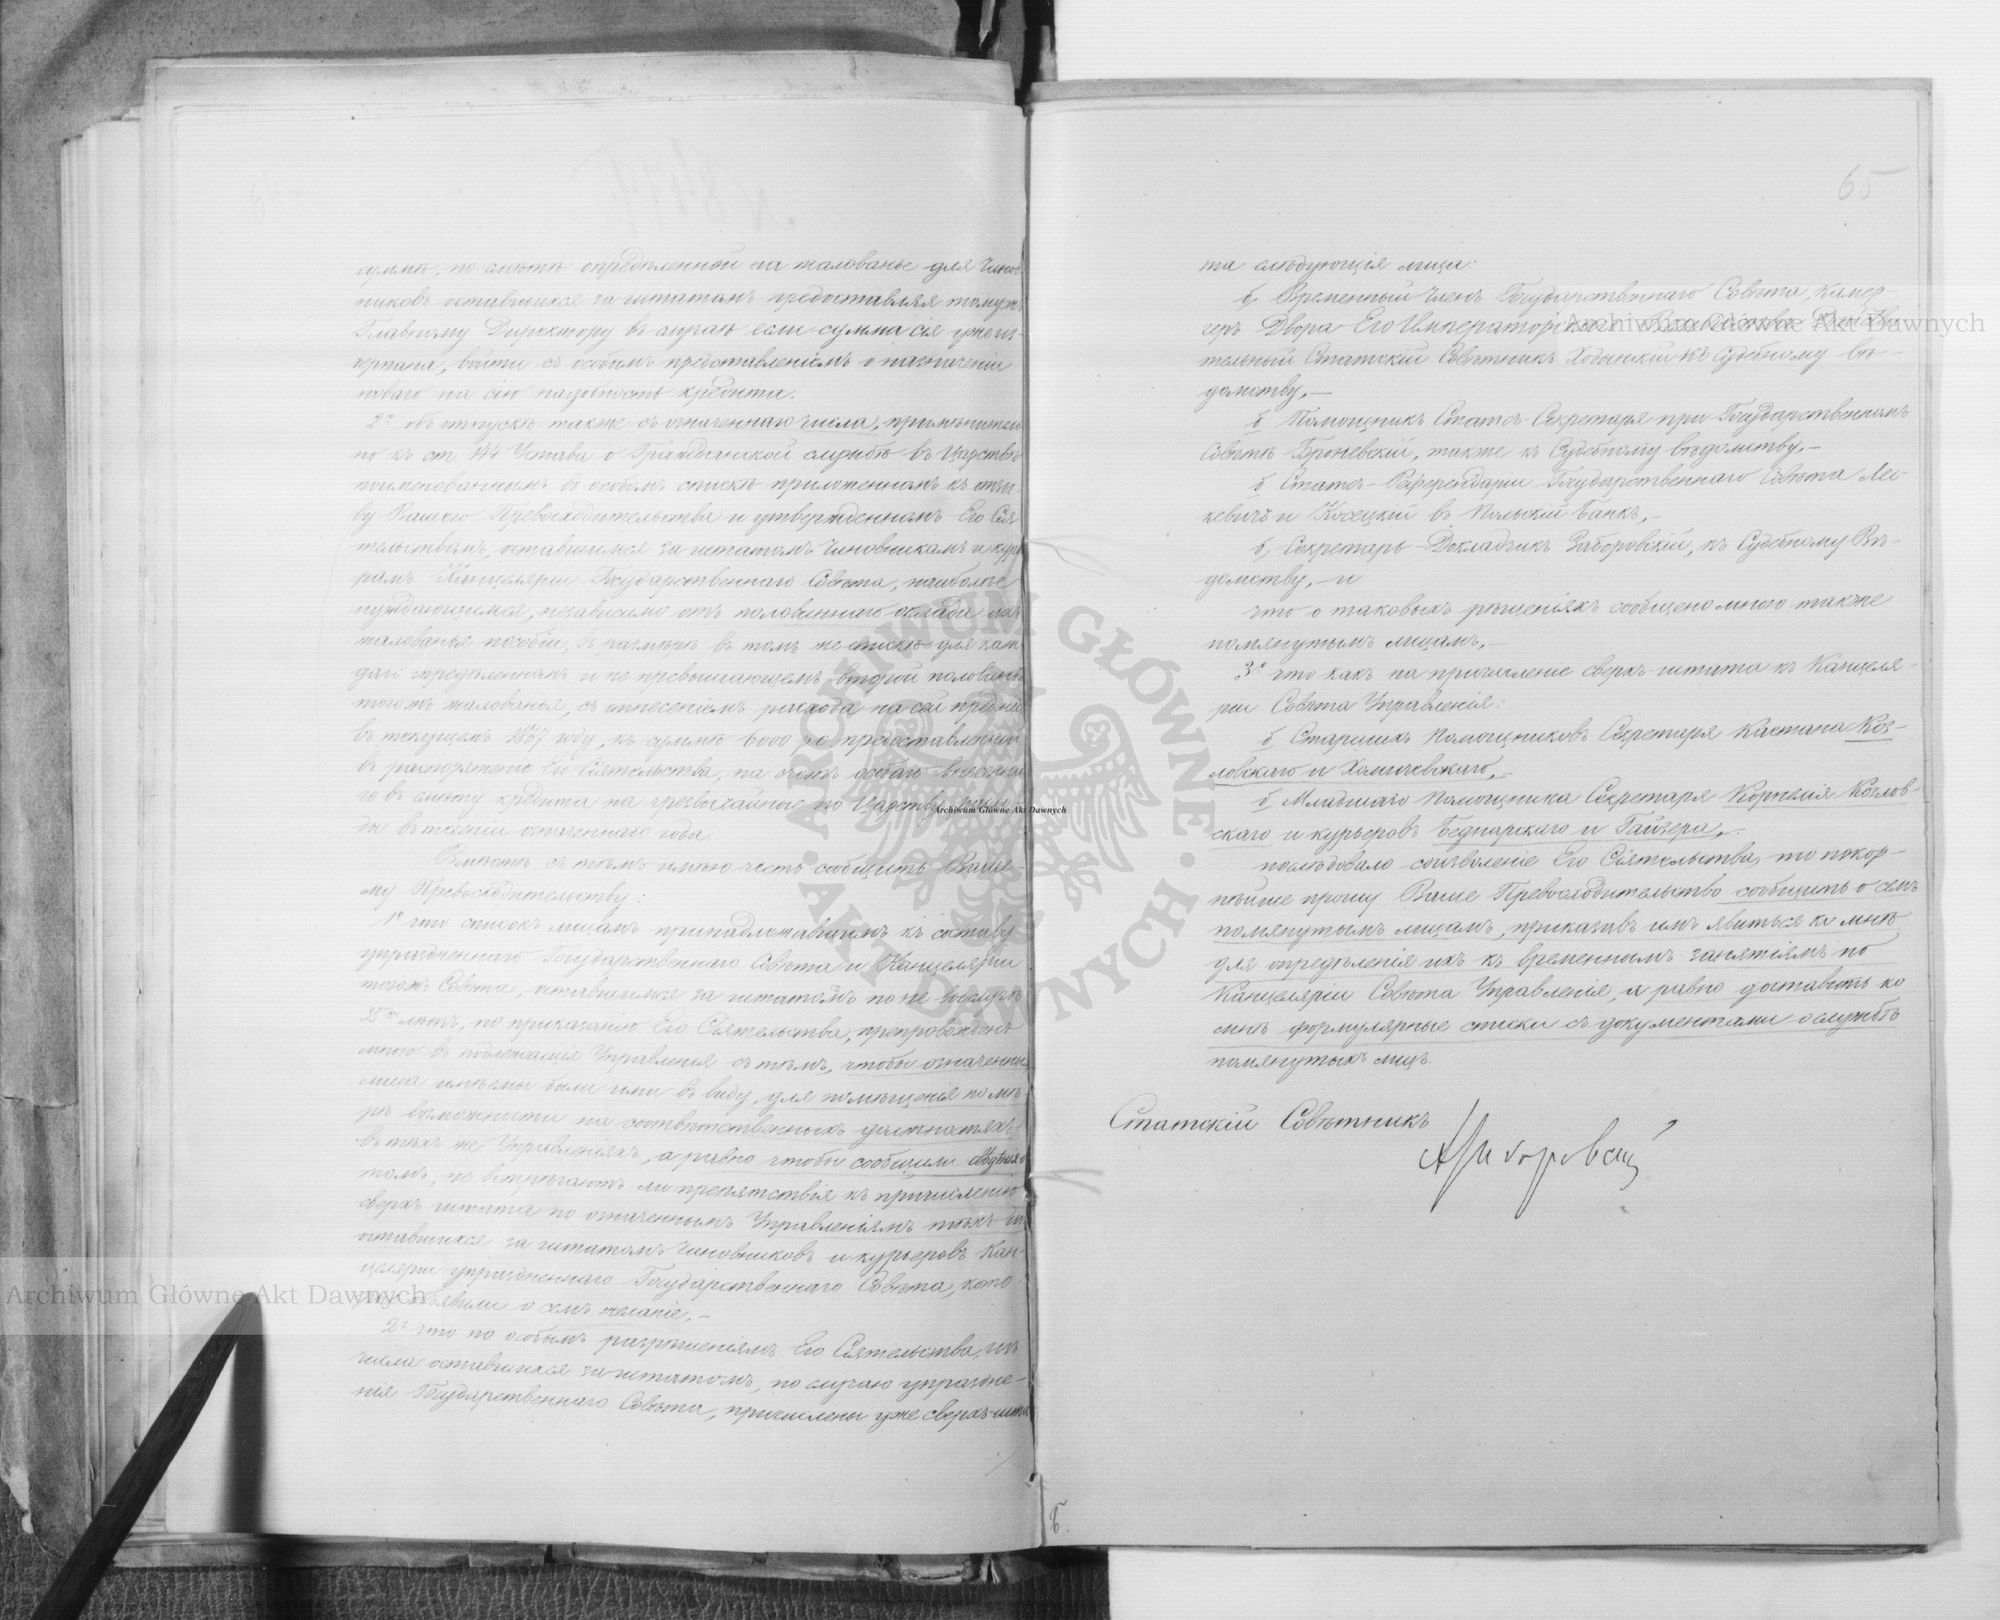 суммѣ, по смѣтѣ опредѣленной на жалованье для чинов-
никовъ оставшихся за штатомъ предоставляя томужъ
Главному Директору въ случаѣ если сумма сія уже ис-
черпана, войти съ особымъ представленіемъ о назначеніи
новаго на сію надобность кредита.
2° объ отпускѣ также съ означеннаго числа, примѣнитель-
но къ ст. 144 Устава о Гражданской службѣ въ Царствѣ
поименованнымъ въ особомъ спискѣ приложенномъ къ отзы-
ву Вашего Превосходительства и утвержденномъ Его Сія-
тельствомъ, оставшимся за штатомъ чиновникамъ и курье-
рамъ Канцеляріи Государственнаго Совѣта, наиболѣе
нуждающимся, независимо отъ половиннаго оклада ихъ
жалованья пособій, въ размѣрѣ въ томъ же спискѣ для каж-
даго опредѣленномъ и не превышающемъ второй половины
тогожъ жалованья, съ отнесеніемъ расхода на сей предметъ
въ текущемъ 1867 году, къ суммѣ 6000 р. предоставленной
въ распоряженіе Его Сіятельства, на счетъ особаго внесенна-
го въ смѣту кредита на чрезвычайные по Царству
въ теченіи означеннаго года
Вмѣстѣ съ тѣмъ имѣю честь сообщить Ваше-
му Превосходительству:
1° что списокъ лицамъ принадлежавшимъ къ составу
упраздненнаго Государственнаго Совѣта и Канцеляріи
тогожъ Совѣта, оставшимся за штатомъ но не
лѣтъ, по приказанію Его Сіятельства, препровожденъ
мною въ подлежащія Управленія съ тѣмъ, чтобы означенныя
лица имѣемы были ими въ виду, для помѣщенія по мѣ-
рѣ возможности на соотвѣтственныхъ должностяхъ
въ тѣхъ же Управленіяхъ, а равно чтобы сообщили свѣденія о
томъ, не встрѣчаютъ ли препятствія къ причисленію
сверхъ штата по означеннымъ Управленіямъ тѣхъ изъ
оставшихся за штатомъ чиновниковъ и курьеровъ Кан-
целяріи упраздненнаго Государственнаго Совѣта, кото-
рые изъявили о семъ желаніе,—
2° что по особымъ разрѣшеніямъ Его Сіятельства, изъ
числа оставшихся за штатомъ, по случаю упраздне-
нія Государственнаго Совѣта, причислены уже сверхъ шта-
65
та слѣдующія лица:
б, Временный Членъ Государственнаго Совѣта, Камер-
геръ Двора Его Императорскаго Величества Дѣйстви-
тельный Статскій Совѣтникъ Ходынскій къ Судебному вѣ-
домству,—
б Помощникъ Статсъ-Секретаря при Государственномъ
Совѣтѣ Броневскій, также къ Судебному вѣдомству,—
б Статсъ-Референдаріи Государственнаго Совѣта Лес-
кевичъ и Косецкій въ Польскій Банкъ,—
б, Секретарь-Докладчикъ Заборовскій, къ Судебному Вѣ-
домству,— и
что о таковыхъ рѣшеніяхъ сообщено мною также
помянутымъ лицамъ,—
3° что какъ на причисленіе сверхъ штата къ Канцеля-
ріи Совѣта Управленія:
б Старшихъ Помощниковъ Секретаря Каетана Коз-
ловскаго и Хамчевскаго,—
б, Младшаго Помощника Секретаря Корнелія Козлов-
скаго и курьеровъ Беднарскаго и Гайгера,—
послѣдовало соизволеніе Его Сіятельства, то покор-
нѣйше прошу Ваше Превосходительство сообщить о семъ
помянутымъ лицамъ, приказавъ имъ явиться ко мнѣ
для опредѣленія ихъ къ временнымъ занятіямъ по
Канцеляріи Совѣта Управленія, а равно доставить ко
мнѣ формулярные списки съ документами о службѣ
помянутыхъ лицъ.
Статскій Совѣтникъ
Archiwum Główne Akt Dawnych
Archiwum Główne Akt Dawnych
Archiwum Główne Akt Dawnych
ARCHIWUM GŁÓWNE AKT DAWNYCH